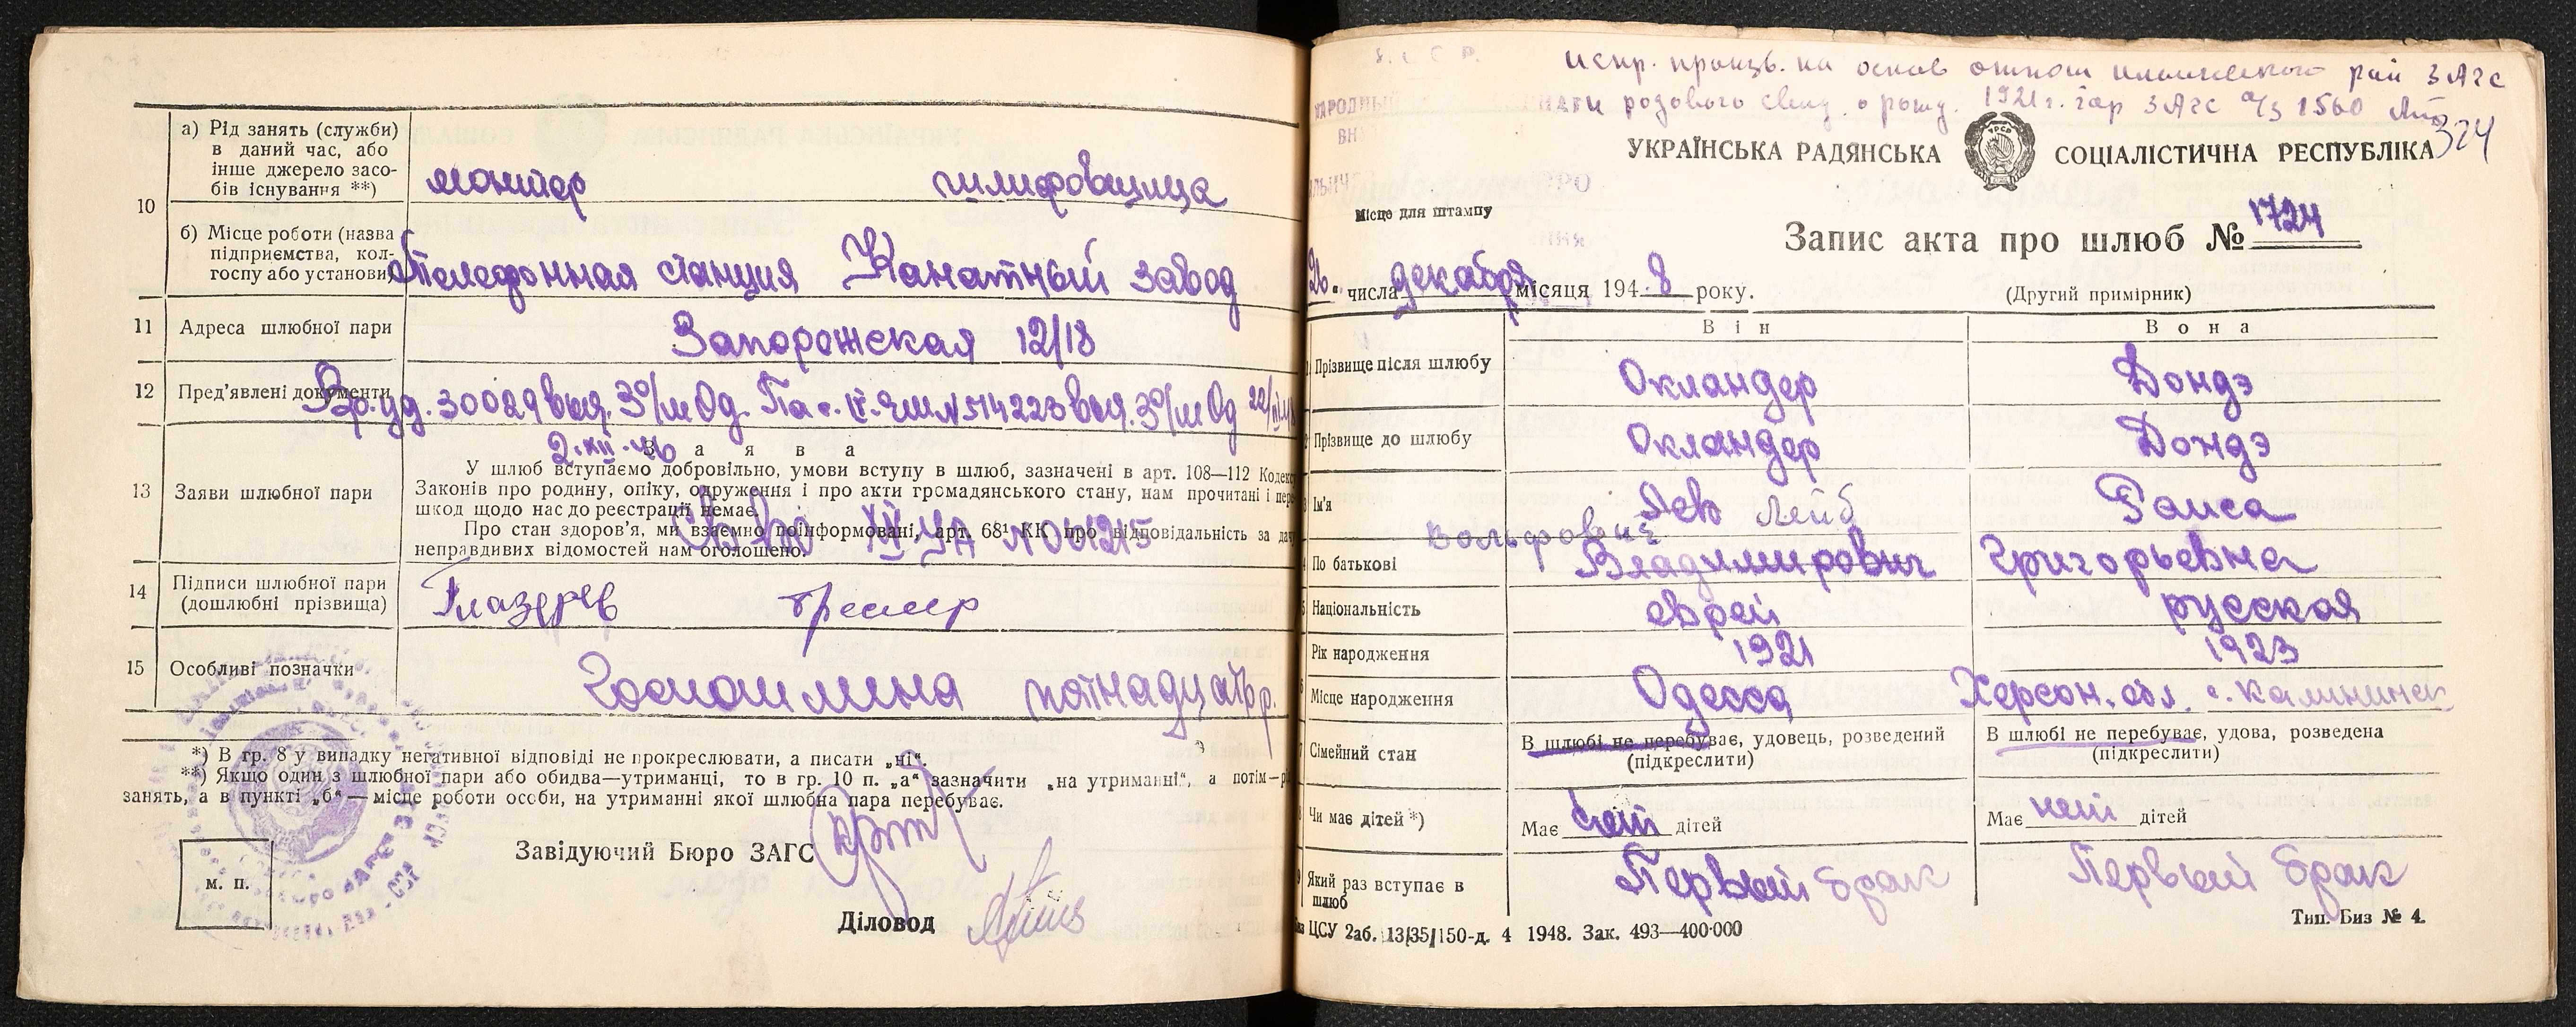 а) Рід занять (служби)
в даний час, або
інше джерело засо-
бів існування **)
монтер шлифовщица
10
б) Місце роботи (назва
підприємства, кол-
госпу або установи)
телефонная станция Канатный завод
11 Адреса шлюбної пари Запорожская 12/18
12 Пред'явлені документи Вр. уд. 30029 выд. 3 о/м Од. Пас. № 514223 выд. 3 о/м Од
2.XII.46
Заява
13 Заяви шлюбної пари
У шлюб вступаємо добровільно, умови вступу в шлюб, зазначені в арт. 108—112 Кодекс
Законів про родину, опіку, одруження і про акти громадянського стану, нам прочитані і пере
шкод щодо нас до реєстрації немає.
Про стан здоров'я, ми взаємно поінформовані, арт. 68¹ КК про відповідальність за дачу
неправдивих відомостей нам оголошено.
14 Підписи шлюбної пари
(дошлюбні прізвища)
15 Особливі позначки Госпошлина пятнадцать р.
*) В гр. 8 у випадку негативної відповіді не прокреслювати, а писати „ні“.
**) Якщо один з шлюбної пари або обидва—утриманці, то в гр. 10 п. „а“ зазначити „на утриманні“, а потім—р
занять, а в пункті „б“—місце роботи особи, на утриманні якої шлюбна пара перебуває.
Завідуючий Бюро ЗАГС
м. п.
Діловод
рай ЗАГС
о рожд. 1921 г. гор ЗАГС а/з 1560
324
УКРАЇНСЬКА РАДЯНСЬКА СОЦІАЛІСТИЧНА РЕСПУБЛІКА
Місце для штампу
Запис акта про шлюб № 1724
26 числа декабря місяця 1948 року.
(Другий примірник)
Він Вона
Прізвище після шлюбу Окландер Дондэ
Прізвище до шлюбу Окландер Дондэ
Ім'я Лев Лейб Раиса
Вольфович
По батькові Владимирович Григорьевна
Національність еврей русская
Рік народження 1921 1923
Місце народження Одесса Херсон. обл. с. Калининск
Сімейний стан
В шлюбі не перебуває, удовець, розведений
(підкреслити)
В шлюбі не перебуває, удова, розведена
(підкреслити)
Чи має дітей *) Має нет дітей Має нет дітей
Який раз вступає в
шлюб
Первый брак Первый брак
ЦСУ 2аб. 13/35/150-д. 4 1948. Зак. 493—400·000
Тип. Биз № 4.